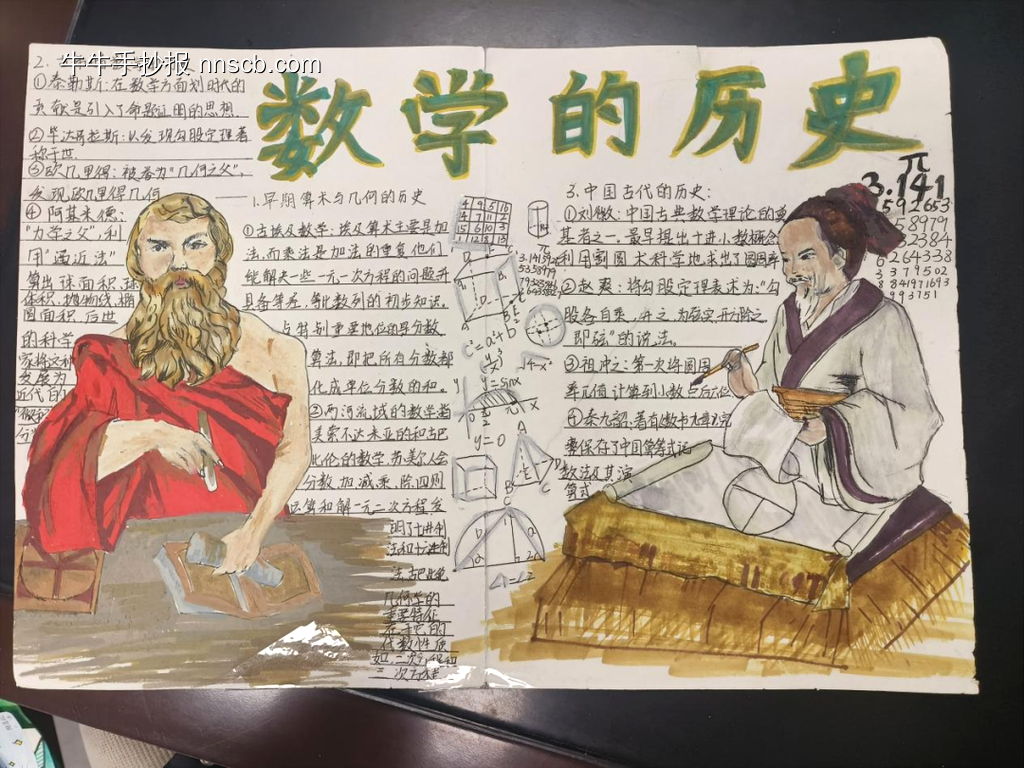 牛牛手抄报 nnscb.com
数学的历史
2.
①泰勒斯:在数学方面划时代的
贡献是引入了命题证明的思想.
②毕达哥拉斯:以发现勾股定理著
称于世.
③欧几里得:被誉为“几何之父”,
发现欧几里得几何
④阿基米德:
“力学之父”,利
用“逼近法”
算出球面积,球
体积,抛物线,椭
圆面积,后世
的科学
家将这种
发展为
近代的
1.早期算术与几何的历史
①古埃及数学:埃及算术主要是加
法,而乘法是加法的重复.他们
能解决一些一元一次方程的问题并
具备等差、等比数列的初步知识.
占特别重要地位的是分数
算法,即把所有分数都
化成单位分数的和.
②两河流域的数学着
美索不达米亚的和古巴
比伦的数学,苏美尔人会
分数,加、减、乘、除四则
运算和解一元二次方程,发
明了十进制
法和十六进制
法,古巴比伦
几何学的
重要特征
在于它的
代数性质
如二次方程和
二次方程
4 9 5 16
3.1415926
5358979
y=sinx
y=0
3.中国古代的历史:
①刘徽:中国古典数学理论的奠
基者之一,最早提出十进小数概念
利用割圆术科学地求出了圆周率
②赵爽:将勾股定理表述为:“勾
股各自乘,并之,为弦实,开方除之
即弦”的说法.
③祖冲之:第一次将圆周
率π值计算到小数点后六位
④秦九韶:著有《数书九章》,完
整保存了中国筹算式记
数法及其演
算式
π
3.141
592653
58979
32384
6264338
3379502
8841971693
993751